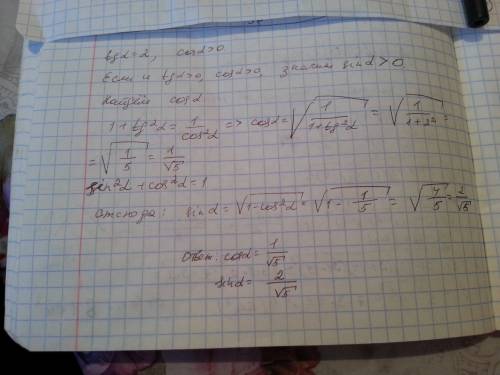 tgα=2, cosα>0
Если и tgα>0, cosα>0, значит sinα>0
Найдём cosα
1+tg²α = 1/cos²α => cosα = √(1/(1+tg²α)) = √(1/(1+2²)) =
= √(1/5) = 1/√5
sin²α + cos²α = 1
Отсюда: sinα = √(1-cos²α) = √(1 - 1/5) = √(4/5) = 2/√5
Ответ: cosα = 1/√5
sinα = 2/√5